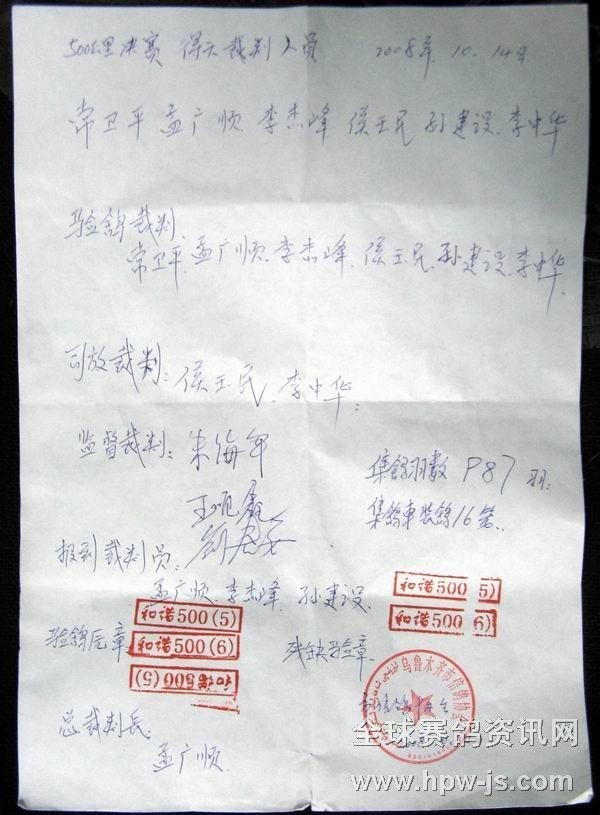 500公里决赛 裁判人员 2008年.10.14日
常卫平 孟广顺 李杰峰 侯玉民 孙建设 李中华
验鸽裁判:
常卫平 孟广顺 李杰峰 侯玉民 孙建设 李中华
司放裁判: 侯玉民 李中华
监督裁判: 朱海军
集鸽羽数 987羽
集鸽车装鸽16笼
报到裁判员
孟广顺 李杰峰 孙建设
和谐500(5)
和谐500(6)
和谐500(5)
验鸽后章
和谐500 5)
和谐500 6)
残缺验章
乌鲁木齐市信鸽协会
总裁判长
孟广顺
全球赛鸽资讯网
www.hpw-js.com